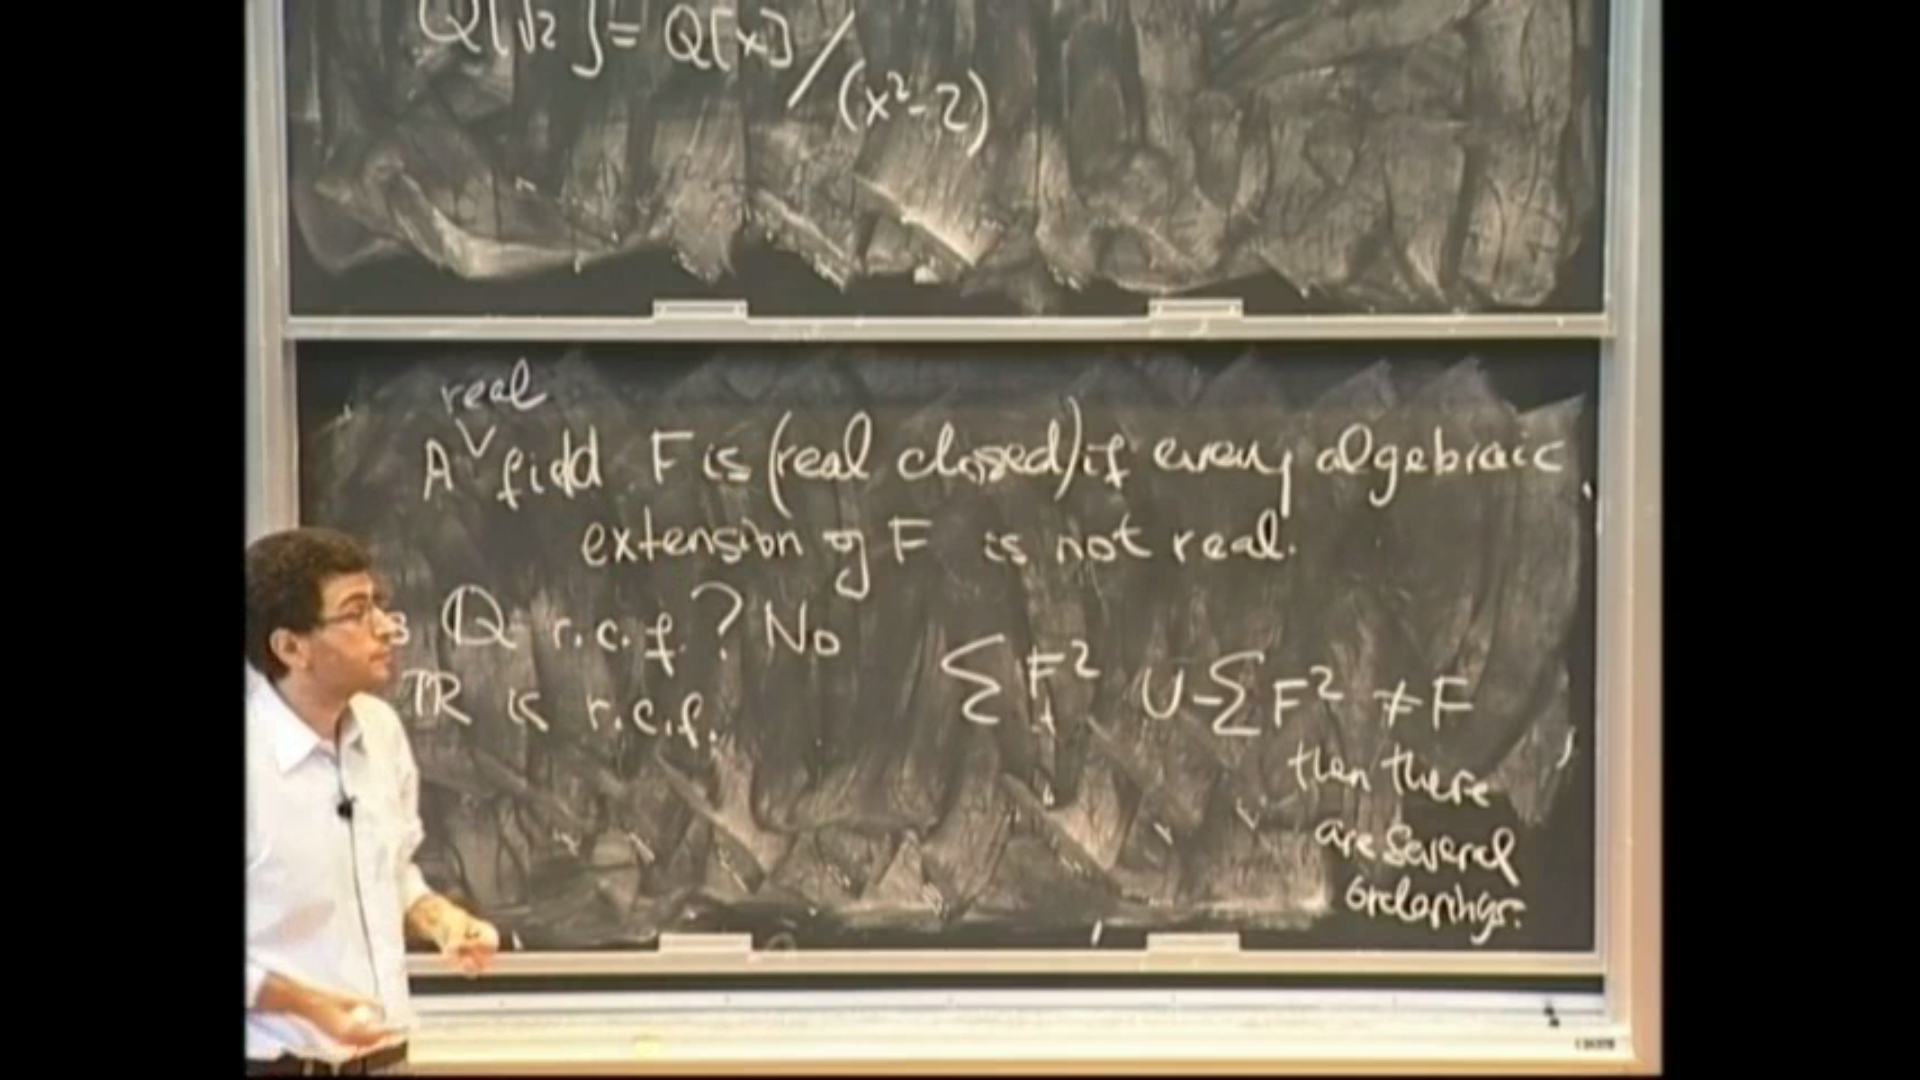 Q[√2] = Q[x]/(x²-2)
real
A ∨ field F is (real closed) if every algebraic
extension of F is not real.
Q r.c.f.? No
ℝ is r.c.f.
∑F² ∪ -∑F² ≠ F
then there
are several
orderings.